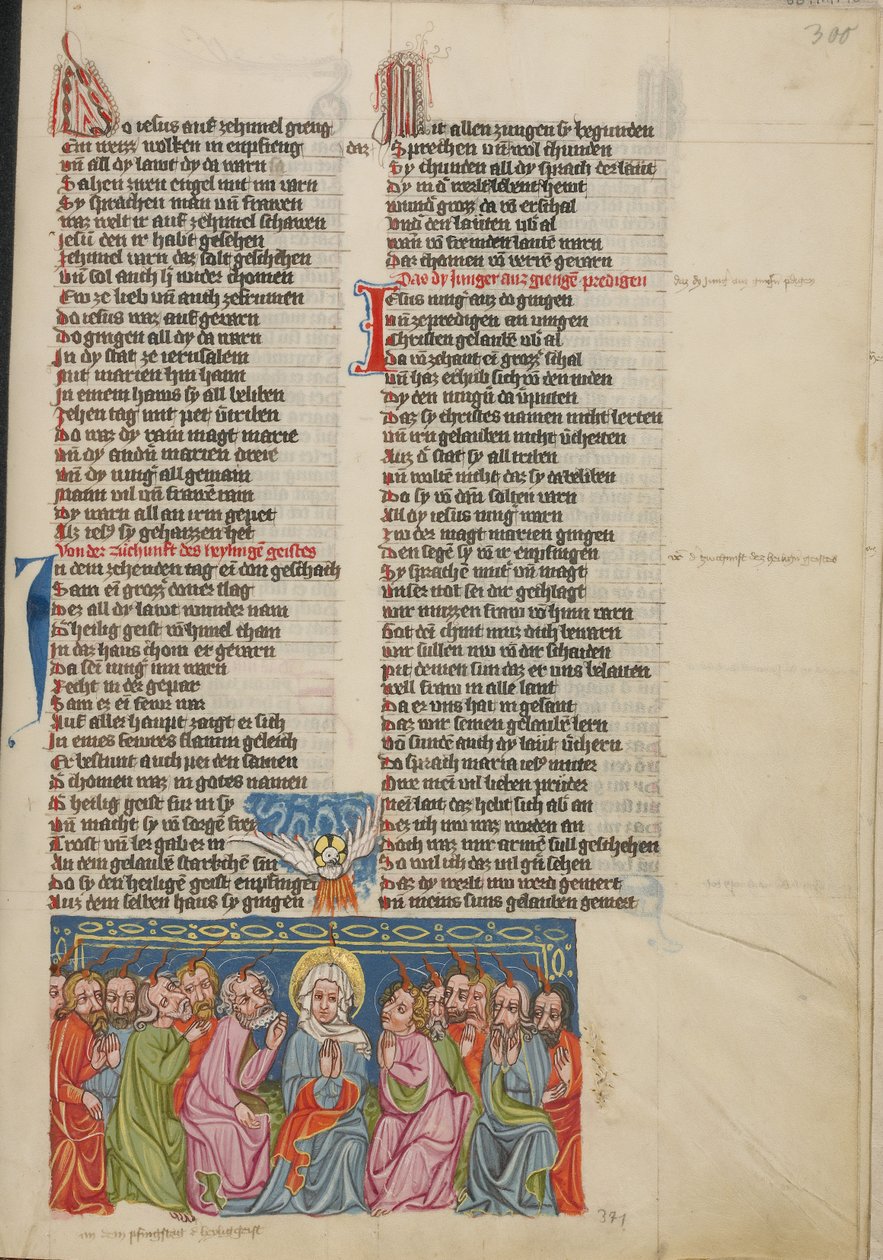 300
Do iesus auf ze himel gieng
Ein weizz wolken in enpfieng
vn̄ all dy lawt dy da warn
Sahen zwen engel mit im varn
Sy sprachen man vn̄ frawen
waz welt ir auf ze himel schawen
Jesū den ir habt gesehen
Ze himel varn daz solt geschehen
Vn̄ sol auch h wider chomen
Ew ze lieb vn̄ auch ze frumen
Do iesus waz auf gevarn
Do gingen all dy da warn
In dy stat ze ierusalem
Mit marien hin haim
In einem haws sy all beliben
Zehen tag mit pet v̄triben
Do waz dy rain magt marie
vn̄ dy andn̄ marien dreie
vn̄ dy iunḡ all gemain
Mann vil vn̄ frawē rain
Dy warn all an irm gepet
Alz ies9 sy gehaizzen het
Von der zuchunft des heyligē geistes
In dem zehenden tag ez don geschach
Sam ei grozz̄ doner slag
Dez all dy lawt wunder nam
D̄ heilig geist vō himel cham
In daz haus chom er gevarn
Da sei iunḡ inn warn
Recht in der gepar
Sam er ei fewr war
Auf aller haupt zaigt er sich
In eines fewres flamm geleich
Er bestunt auch pei den samen
D̄ chomen waz in gotes namen
D̄ heilig geist fur in sy
vn̄ macht sy vō sorgē frey
Trost vn̄ ler gab er in
An dem gelaubē starkchē sin
Do sy den heiligē geist enpfingen
Auz dem selben haus sy gingen
daz
Mit allen zungen sy begunden
Sprechen vn̄ wol chunden
Sy chunden all dy sprach der laut
Dy in d̄ werlt lebent hewt
wund̄ grozz da vō erschal
Vnd̄ den lauten vb̄ al
wan vō fremden lautē warn
Dar chomen vō verrē gevarn
Daz dy iunger auz giengē predigen
Jesus iunḡ auz do gingen
vn̄ ze predigen an vingen
Christen gelaubē vb̄ al
Da vō zehant ei grozz̄ schal
vn̄ haz erhub sich vō den iuden
Dy den iungn̄ da v̄puten
Daz sy christes namen nicht lerten
vn̄ irn gelauben nicht v̄cherten
Auz d̄ stat sy all triben
vn̄ woltē nicht daz sy da beliben
Do sy vō dan̄ solten varn
All dy iesus iunḡ warn
Zu der magt marien gingen
Den segē sy vō ir enpfingen
Sy sprachē mut̄ vn̄ magt
vnser not sei dir gechlagt
wir muzzen fraw vō hinn varn
Got dei chint muz dich bewarn
wir sullen nu vō dir schaiden
Pit deinen sun daz er uns belaiten
well fraw in alle lant
Da er uns hat in gesant
Daz wir seinen gelaubē lern
vō sundē auch dy laut v̄chern
Do sprach maria ies9 muter
Owe mei vil lieben prüder
Mei lait daz hebt sich ab̄ an
Der ich nu waz worden an
Doch waz mir armē sull geschehen
So wil ich daz vil gn̄ sehen
Daz dy werlt nu werd gemert
vn̄ meins suns gelauben gemert
daz dy Junḡ aus gingn̄ pdigen
vō d zuchunft dez heiligen geistes
an dem pfingstag d heilig geist
371